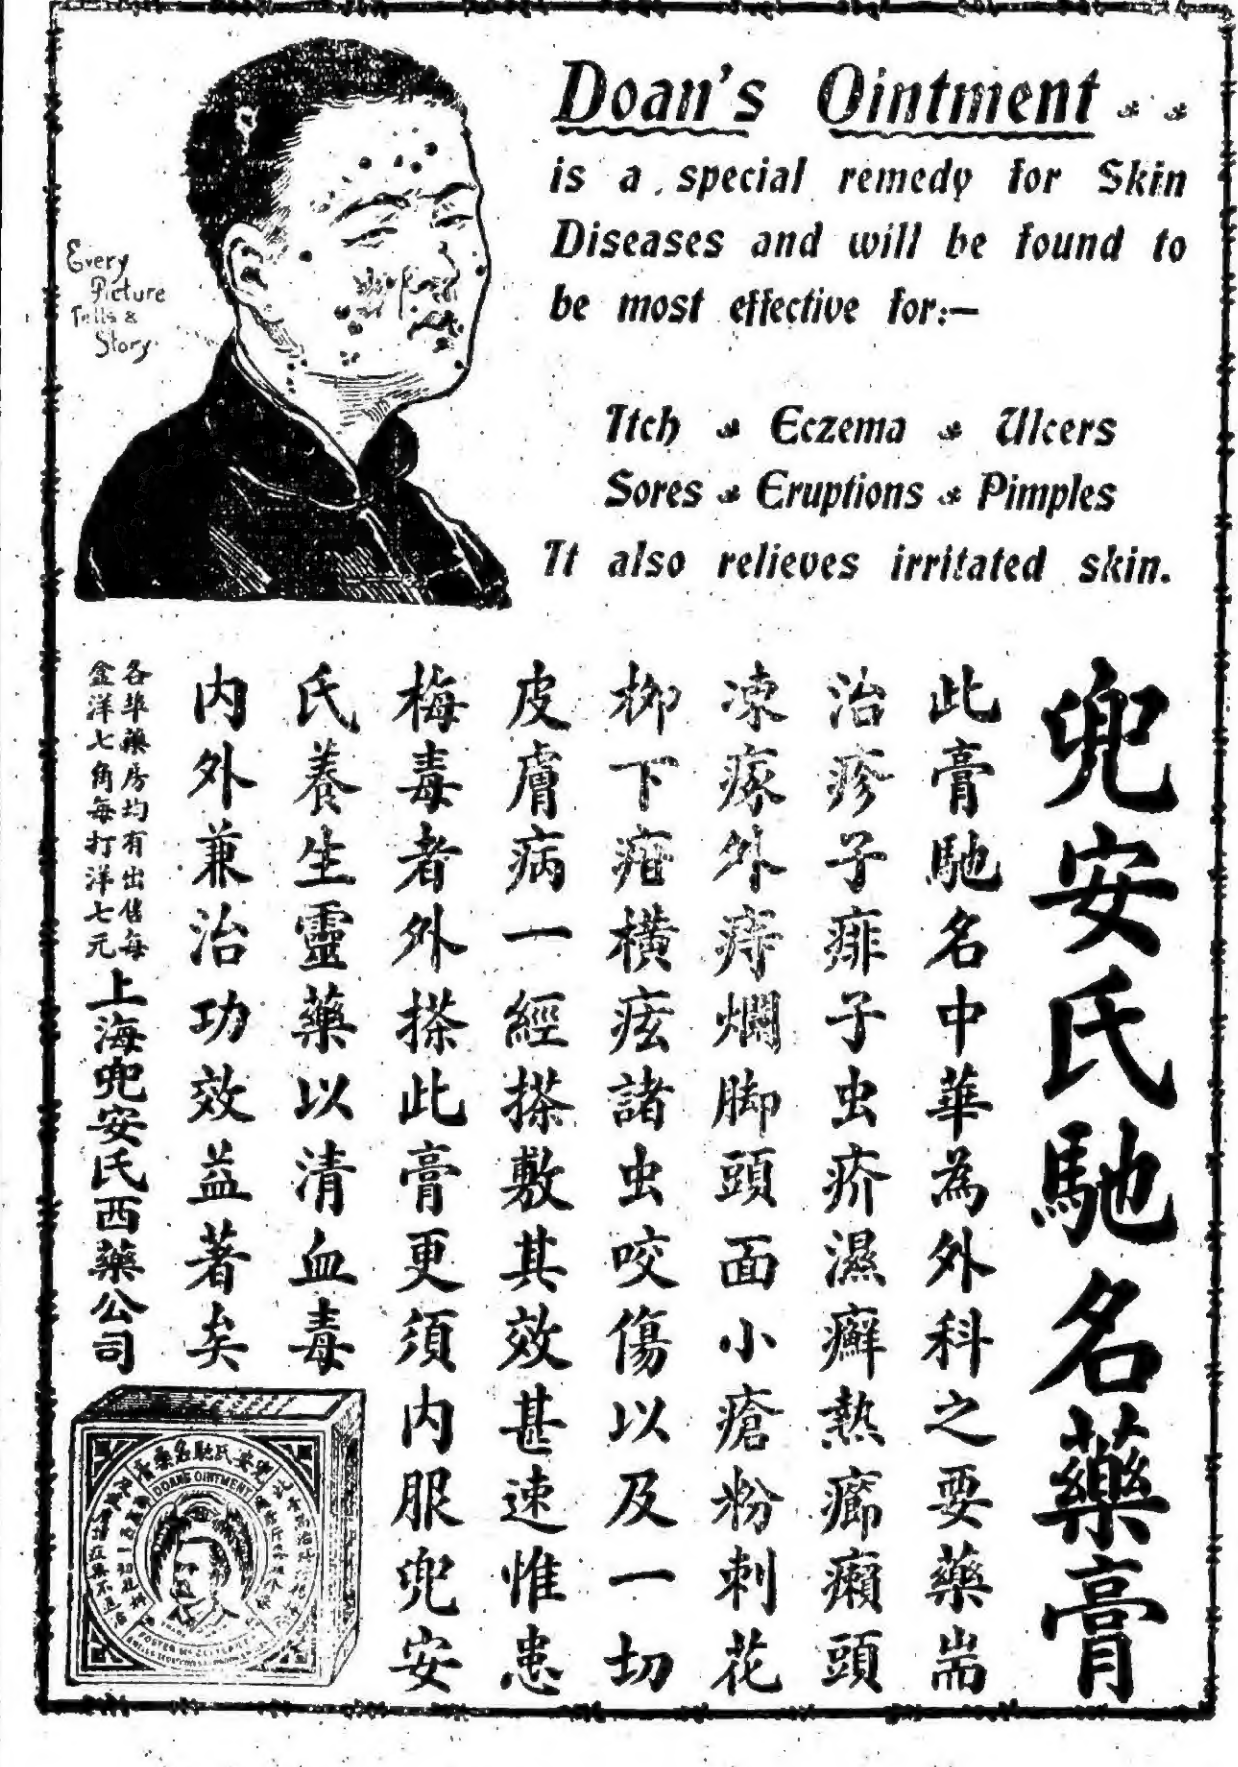 Every
Picture
Tells a
Story.
Doan's Ointment
is a special remedy for Skin
Diseases and will be found to
be most effective for:—
Itch Eczema Ulcers
Sores Eruptions Pimples
It also relieves irritated skin.
兜安氏馳名藥膏
此膏馳名中華為外科之要藥耑
治疹子痱子虫疥濕癬熱癤癩頭
凍瘃外痔爛脚頭面小瘡粉刺花
柳下疳橫痃諸虫咬傷以及一切
皮膚病一經搽敷其效甚速惟患
梅毒者外搽此膏更須內服兜安
氏養生靈藥以清血毒
內外兼治功效益著矣
各埠藥房均有出售每
盒洋七角每打洋七元
上海兜安氏西藥公司
兜安氏馳名藥膏
DOAN'S OINTMENT